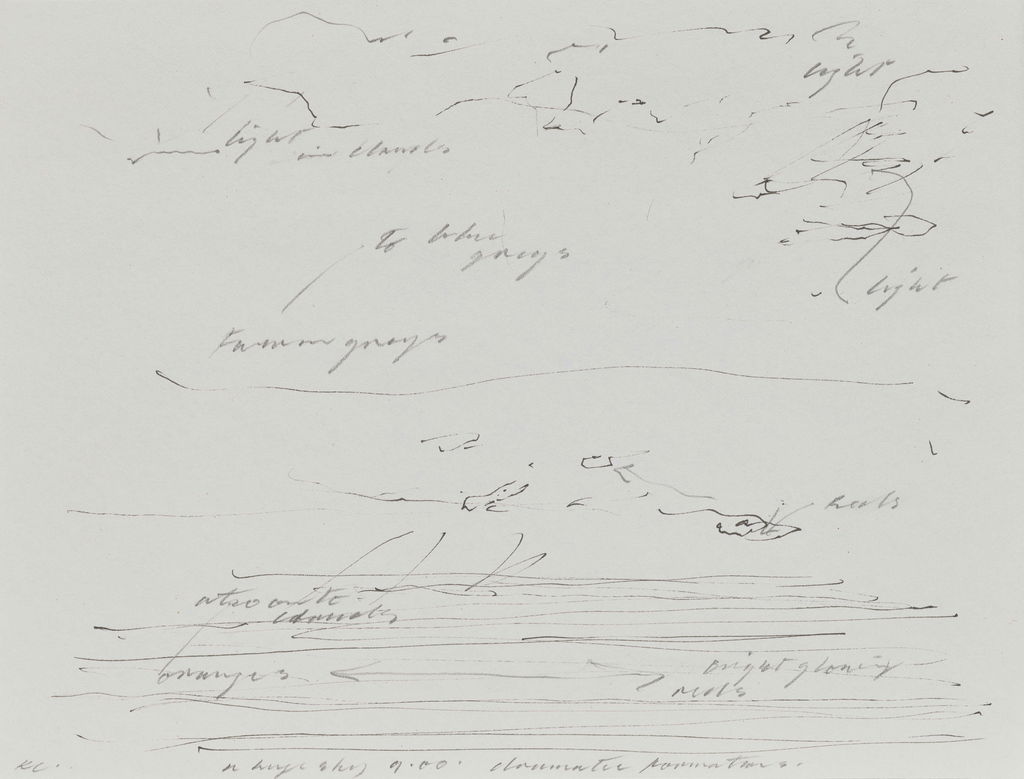 light
light
in clouds
to blue
greys
light
warm greys
Reds
also onto
clouds
oranges
Bright glowing
reds
KC.
a huge sky 9.00. dramatic formations.